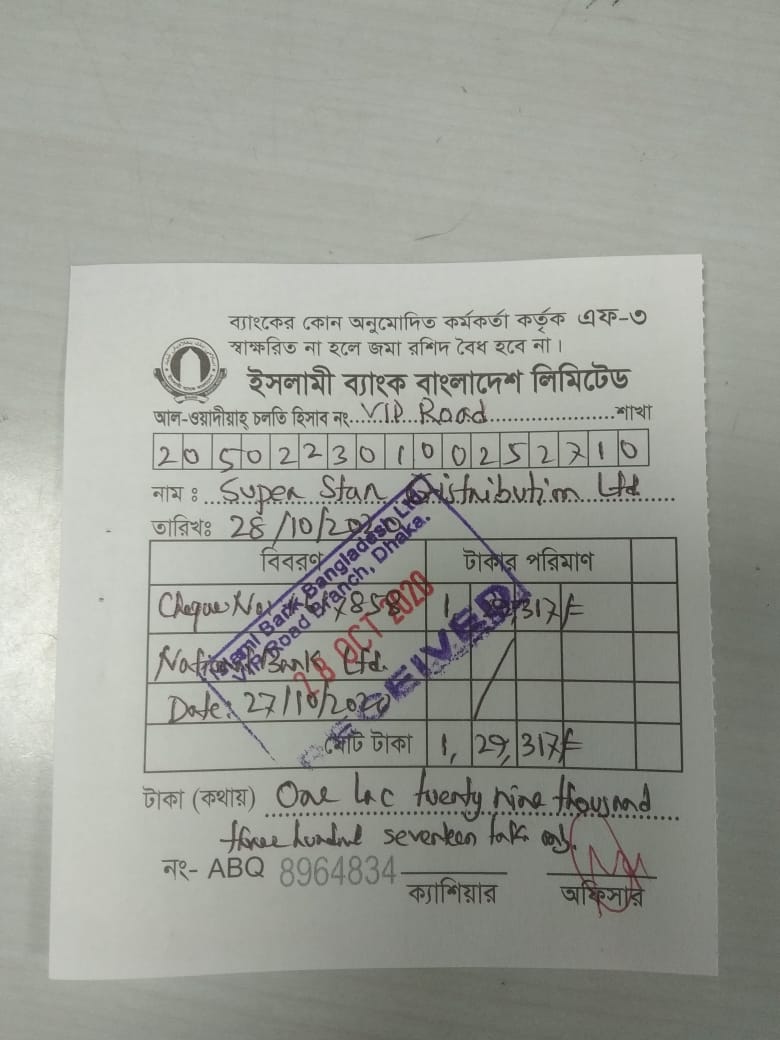 ব্যাংকের কোন অনুমোদিত কর্মকর্তা কর্তৃক এফ-৩
স্বাক্ষরিত না হলে জমা রশিদ বৈধ হবে না।
ইসলামী ব্যাংক বাংলাদেশ লিমিটেড
আল-ওয়াদীয়াহ্ চলতি হিসাব নং...VIP Road...শাখা
20502230100252710
নাম : Super Star Distribution Ltd
তারিখঃ 28/10/2020
বিবরণ টাকার পরিমাণ
Cheque No 7858 1, 29,317/=
National Bank Ltd.
Date: 27/10/2020
মোট টাকা 1, 29, 317/=
Islami Bank Bangladesh Ltd.
VIP Road Branch, Dhaka.
28 OCT 2020
RECEIVED
টাকা (কথায়) One lac twenty nine thousand
three hundred seventeen taka only.
নং- ABQ 8964834
ক্যাশিয়ার অফিসার